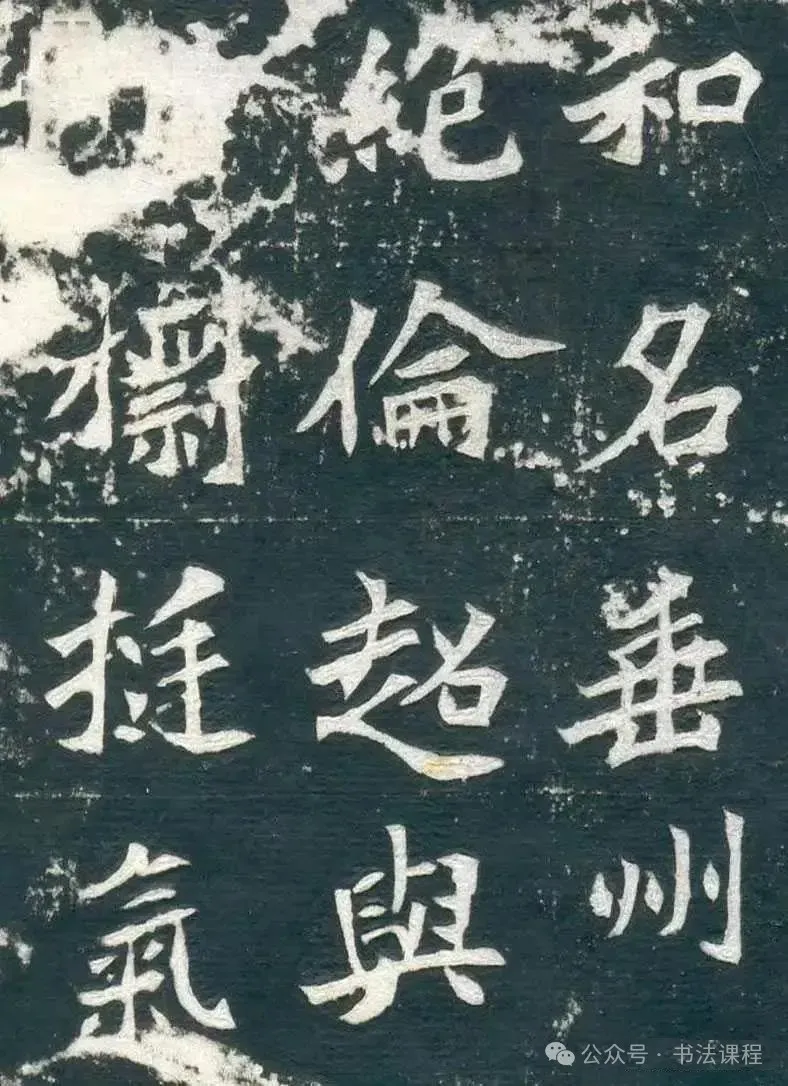 和名垂州
絕倫超與
挺氣
公众号·书法课程